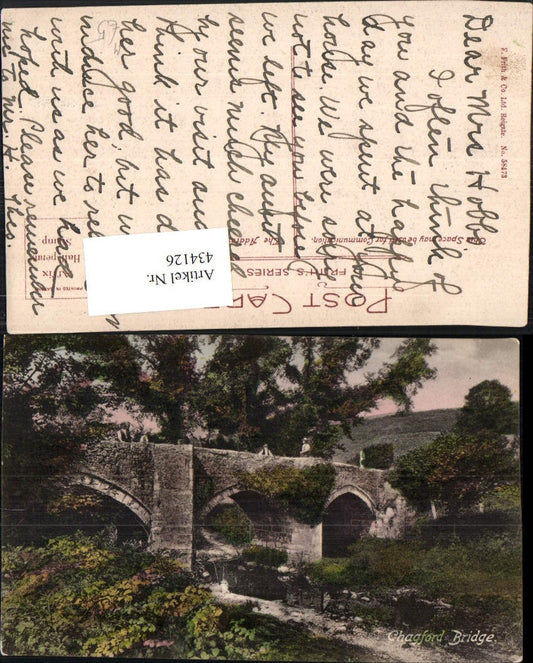 Dear Mrs Hobbs
I often think of
you and the happy
day we spent at your
house. We were sorry
not to see you before
we left. My aunt
seems much cheered
by our visit and I
think it has done
her good, but we
induce her to
with us as we had
hoped. Please remember
me to Mr. H
This Space may be used for Communication.
The Address
POST CARD
FRITH'S SERIES
Affix
Halfpenny
Stamp
F. Frith & Co. Ltd. Reigate. No. 58473
PRINTED IN
Artikel Nr.
434126
Chagford Bridge.